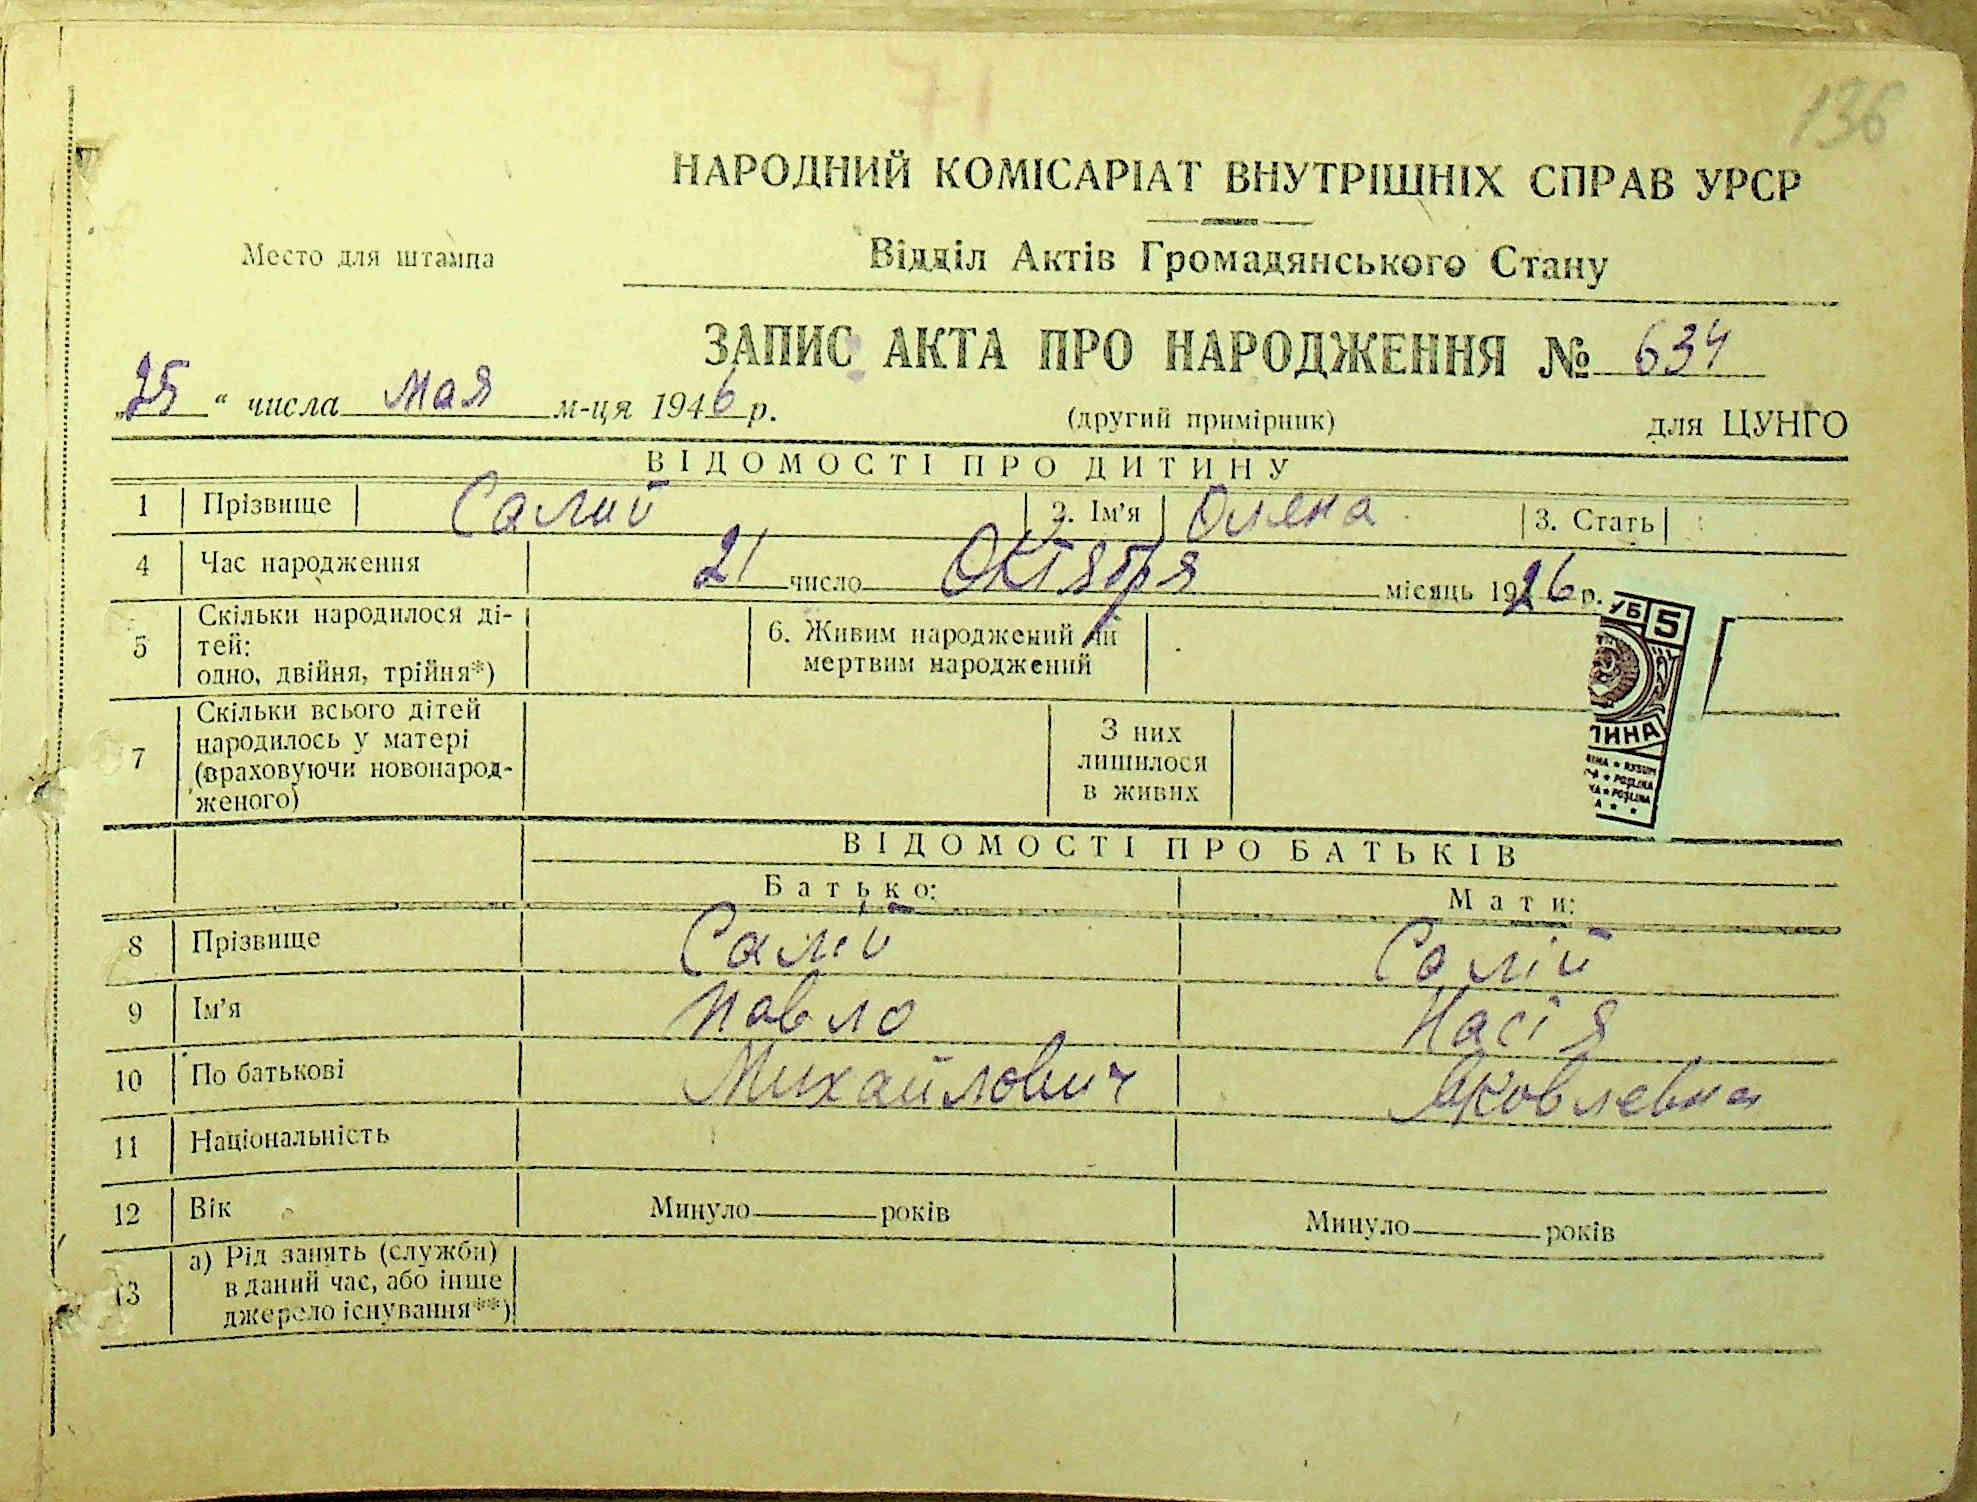 71
136
НАРОДНИЙ КОМІСАРІАТ ВНУТРІШНІХ СПРАВ УРСР
Место для штампа
Відділ Актів Громадянського Стану
ЗАПИС АКТА ПРО НАРОДЖЕННЯ № 634
„25“ числа мая м-ця 1946 р.
(другий примірник)
для ЦУНГО
ВІДОМОСТІ ПРО ДИТИНУ
1 Прізвище Салий 2. Ім'я Олена 3. Стать
4 Час народження 21 число Октября місяць 1926 р.
5 Скільки народилося ді-
тей:
одно, двійня, трійня*)
6. Живим народжений чи
мертвим народжений
УБ 5
ЛИНА
7 Скільки всього дітей
народилось у матері
(враховуючи новонарод-
женого)
З них
лишилося
в живих
ВІДОМОСТІ ПРО БАТЬКІВ
Батько: Мати:
8 Прізвище Салій Салій
9 Ім'я Павло Насія
10 По батькові Михайлович Яковлевна
11 Національність
12 Вік Минуло років Минуло років
13 а) Рід занять (служби)
в даний час, або інше
джерело існування**)